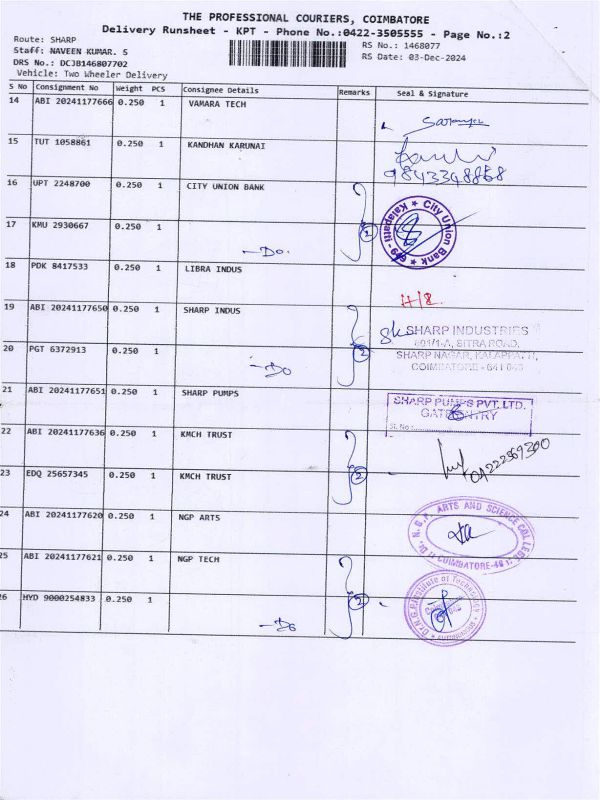 THE PROFESSIONAL COURIERS, COIMBATORE
Delivery Runsheet - KPT - Phone No.:0422-3505555 - Page No.:2
Route: SHARP
RS No.: 1468077
Staff: NAVEEN KUMAR. S
RS Date: 03-Dec-2024
DRS No.: DCJB146807702
Vehicle: Two Wheeler Delivery
S No Consignment No Weight PCS Consignee Details Remarks Seal & Signature
14 ABI 20241177666 0.250 1 VAMARA TECH
15 TUT 1058861 0.250 1 KANDHAN KARUNAI
9843348868
16 UPT 2248700 0.250 1 CITY UNION BANK
City Union Bank ★ Kalapatti - 699 ★
17 KMU 2930667 0.250 1
-Do. 2
18 PDK 8417533 0.250 1 LIBRA INDUS
19 ABI 20241177650 0.250 1 SHARP INDUS
SHARP INDUSTRIES
SITRA ROAD,
20 PGT 6372913 0.250 1
SHARP NAGAR, KALAPPATTI,
COIMBATORE - 641 048
-Do 2
21 ABI 20241177651 0.250 1 SHARP PUMPS
SHARP PUMPS PVT. LTD.
GATE ENTRY
Sl. No.:
22 ABI 20241177636 0.250 1 KMCH TRUST
23 EDQ 25657345 0.250 1 KMCH TRUST 2
24 ABI 20241177620 0.250 1 NGP ARTS
Dr. N.G.P. ARTS AND SCIENCE COLLEGE
COIMBATORE-48
25 ABI 20241177621 0.250 1 NGP TECH
Dr.N.G.P.Institute of Technology
26 HYD 9000254833 0.250 1
-Do 2